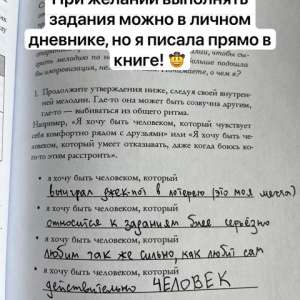 При желании выполнять
задания можно в личном
дневнике, но я писала прямо в
книге! 🤠
1. Продолжите утверждения ниже, следуя своей внутрен-
ней мелодии. Где-то она может быть созвучна другим,
где-то — выбиваться из общего ритма.
Например, «Я хочу быть человеком, который чувствует
себя комфортно рядом с друзьями» или «Я хочу быть че-
ловеком, который умеет отказывать, даже когда боюсь ко-
го-то этим расстроить».
• я хочу быть человеком, который
выиграл джек-пот в лотерею (это моя мечта)
• я хочу быть человеком, который
относится к заданиям более серьёзно
• я хочу быть человеком, который
любим так же сильно, как любит сам
• я хочу быть человеком, который
действительно ЧЕЛОВЕК